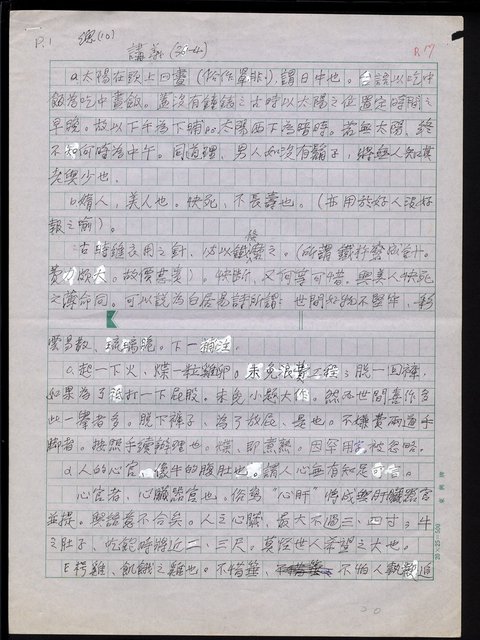 P.1 漂(10)
講義(33-4)
R17
a.太陽在頭上回晝(俗作單貼),謂日中也。台語以吃中
飯為吃中晝飯。蓋沒有鐘錶之古時以太陽之位置定時間之
早晚。故以下午為下晡。太陽西下為暗時。若無太陽,終
不知何時為中午。同道理,男人如沒有鬍子,將無人知其
老與少也.
b.婿人,美人也。快死,不長壽也。(亦用於好人沒好
報之喻)。
古時縫衣用之針,皆以鐵磨之。(所謂鐵杵磨成針。
費力頗大。故價甚貴)。快斷,又何等可惜.與美人快死
之薄命同。可以說為白居易詩所謂:世間好物不堅牢,彩
雲易散、琉璃脆。下一
c.起一下火、煠一粒雞卵。未免浪費工程;脫一回褲,
如果為了 打一下屁股。未免小題大作。然而世間喜作多
此一舉者多。脫下褲子、為了放屁、是也。不嫌費兩道手
腳者。按照手續辦理也。煠,即煮熟。因罕用 被忽略。
d.人的心官、 牛的腹肚也。謂人心無有知足
心官者、心臟器官也。俗熟"心肝"傳成與肝臟器官
並提。與語意不合矣。人之心臟,最大不過三、四寸;牛
之肚子、吃飽時將近二、三尺。莫怪世人希望之大也。
E.枵雞、飢餓之雞也。不惜箠、 不怕人執 追
20×25=500
20